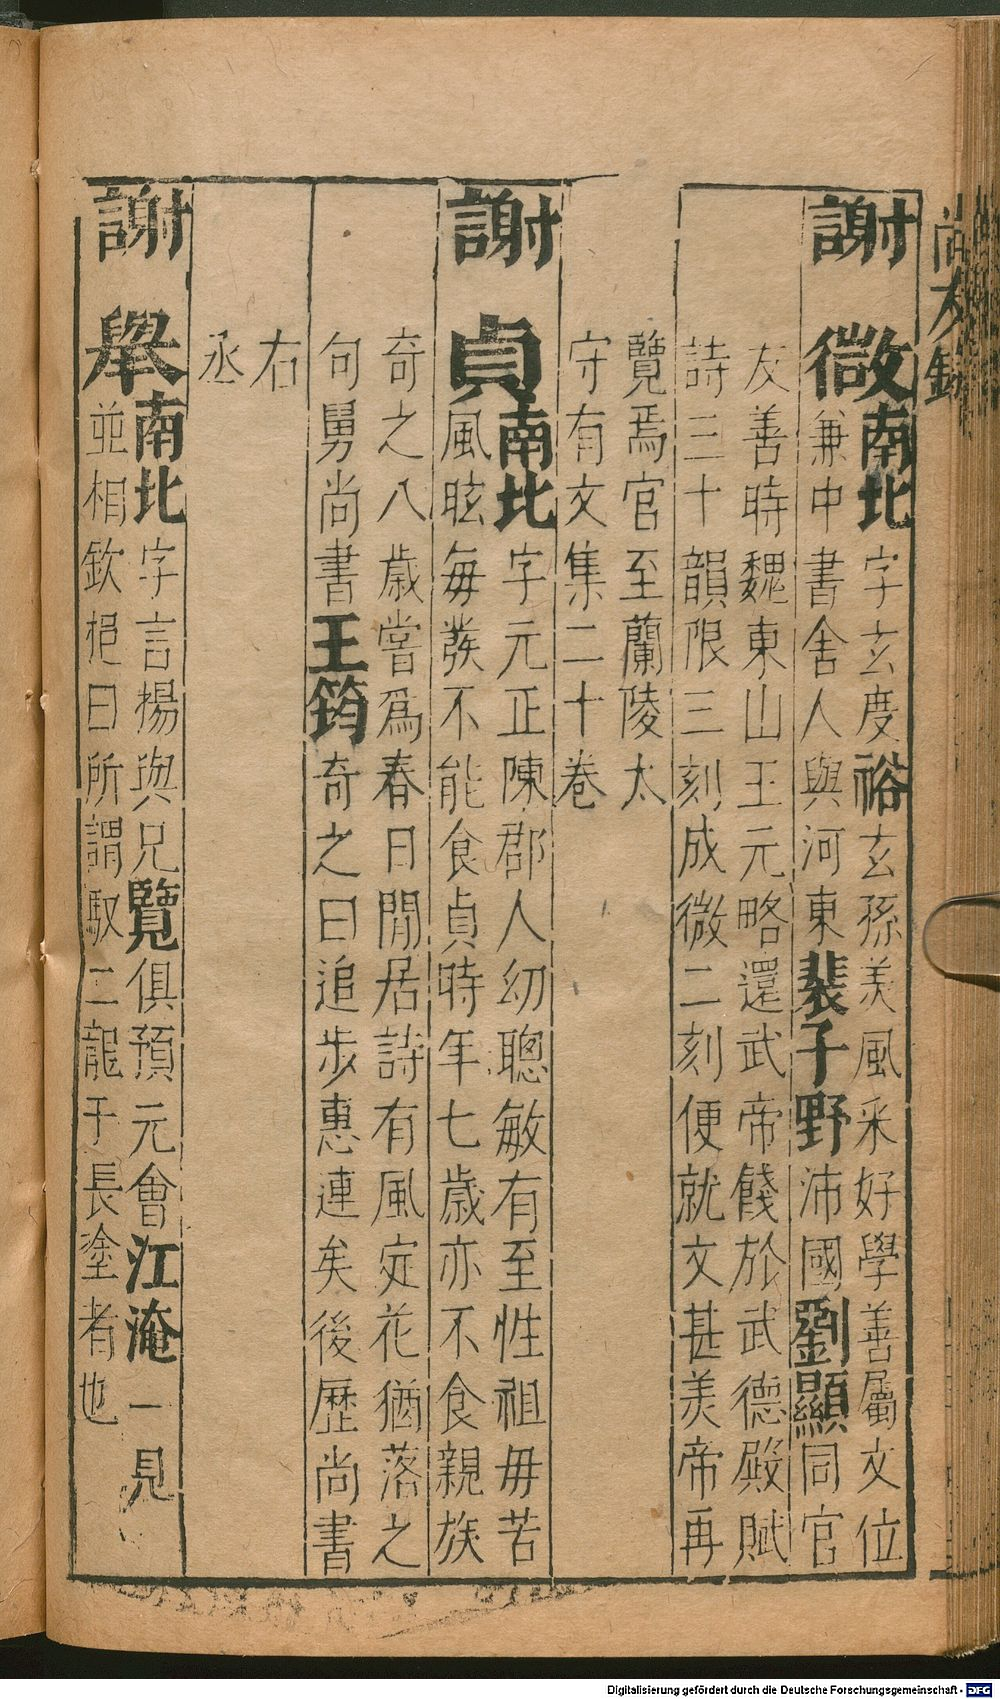 尚友錄
謝微南北字玄度裕玄孫美風采好學善屬文位
兼中書舍人與河東裴子野沛國劉顯同官
友善時魏東山王元略還武帝餞於武德殿賦
詩三十韻限三刻成微二刻便就文甚美帝再
覽焉官至蘭陵太
守有文集二十卷
謝貞南北字元正陳郡人幼聰敏有至性祖毋苦
風眩每發不能食貞時年七歲亦不食親族
奇之八歲嘗爲春日閒居詩有風定花猶落之
句舅尚書王筠奇之曰追步惠連矣後歷尚書
右
丞
謝舉南北字言揚與兄覽俱預元會江淹一見
並相欽挹曰所謂馭二龍于長塗者也
Digitalisierung gefördert durch die Deutsche Forschungsgemeinschaft - DFG